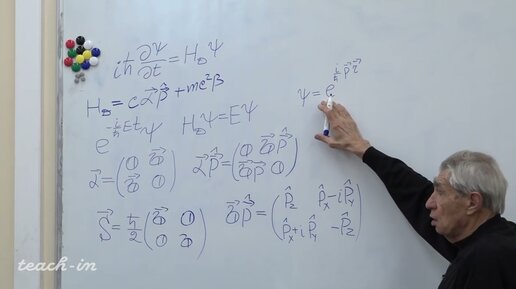 iħ ∂Ψ/∂t = H_D Ψ
H_D = c α⃗ p̂⃗ + mc²β
e^{-i/ħ Et} Ψ   H_D Ψ = EΨ
Ψ = e^{i/ħ p⃗ r⃗}
α⃗ = (0 σ⃗; σ⃗ 0)   α⃗ p̂⃗ = (0 σ⃗ p̂⃗; σ⃗ p⃗ 0)
S⃗ = ħ/2 (σ⃗ 0; 0 σ⃗)   σ⃗ p̂⃗ = (p̂_z p̂_x - i p̂_y; p̂_x + i p̂_y -p̂_z)
teach-in